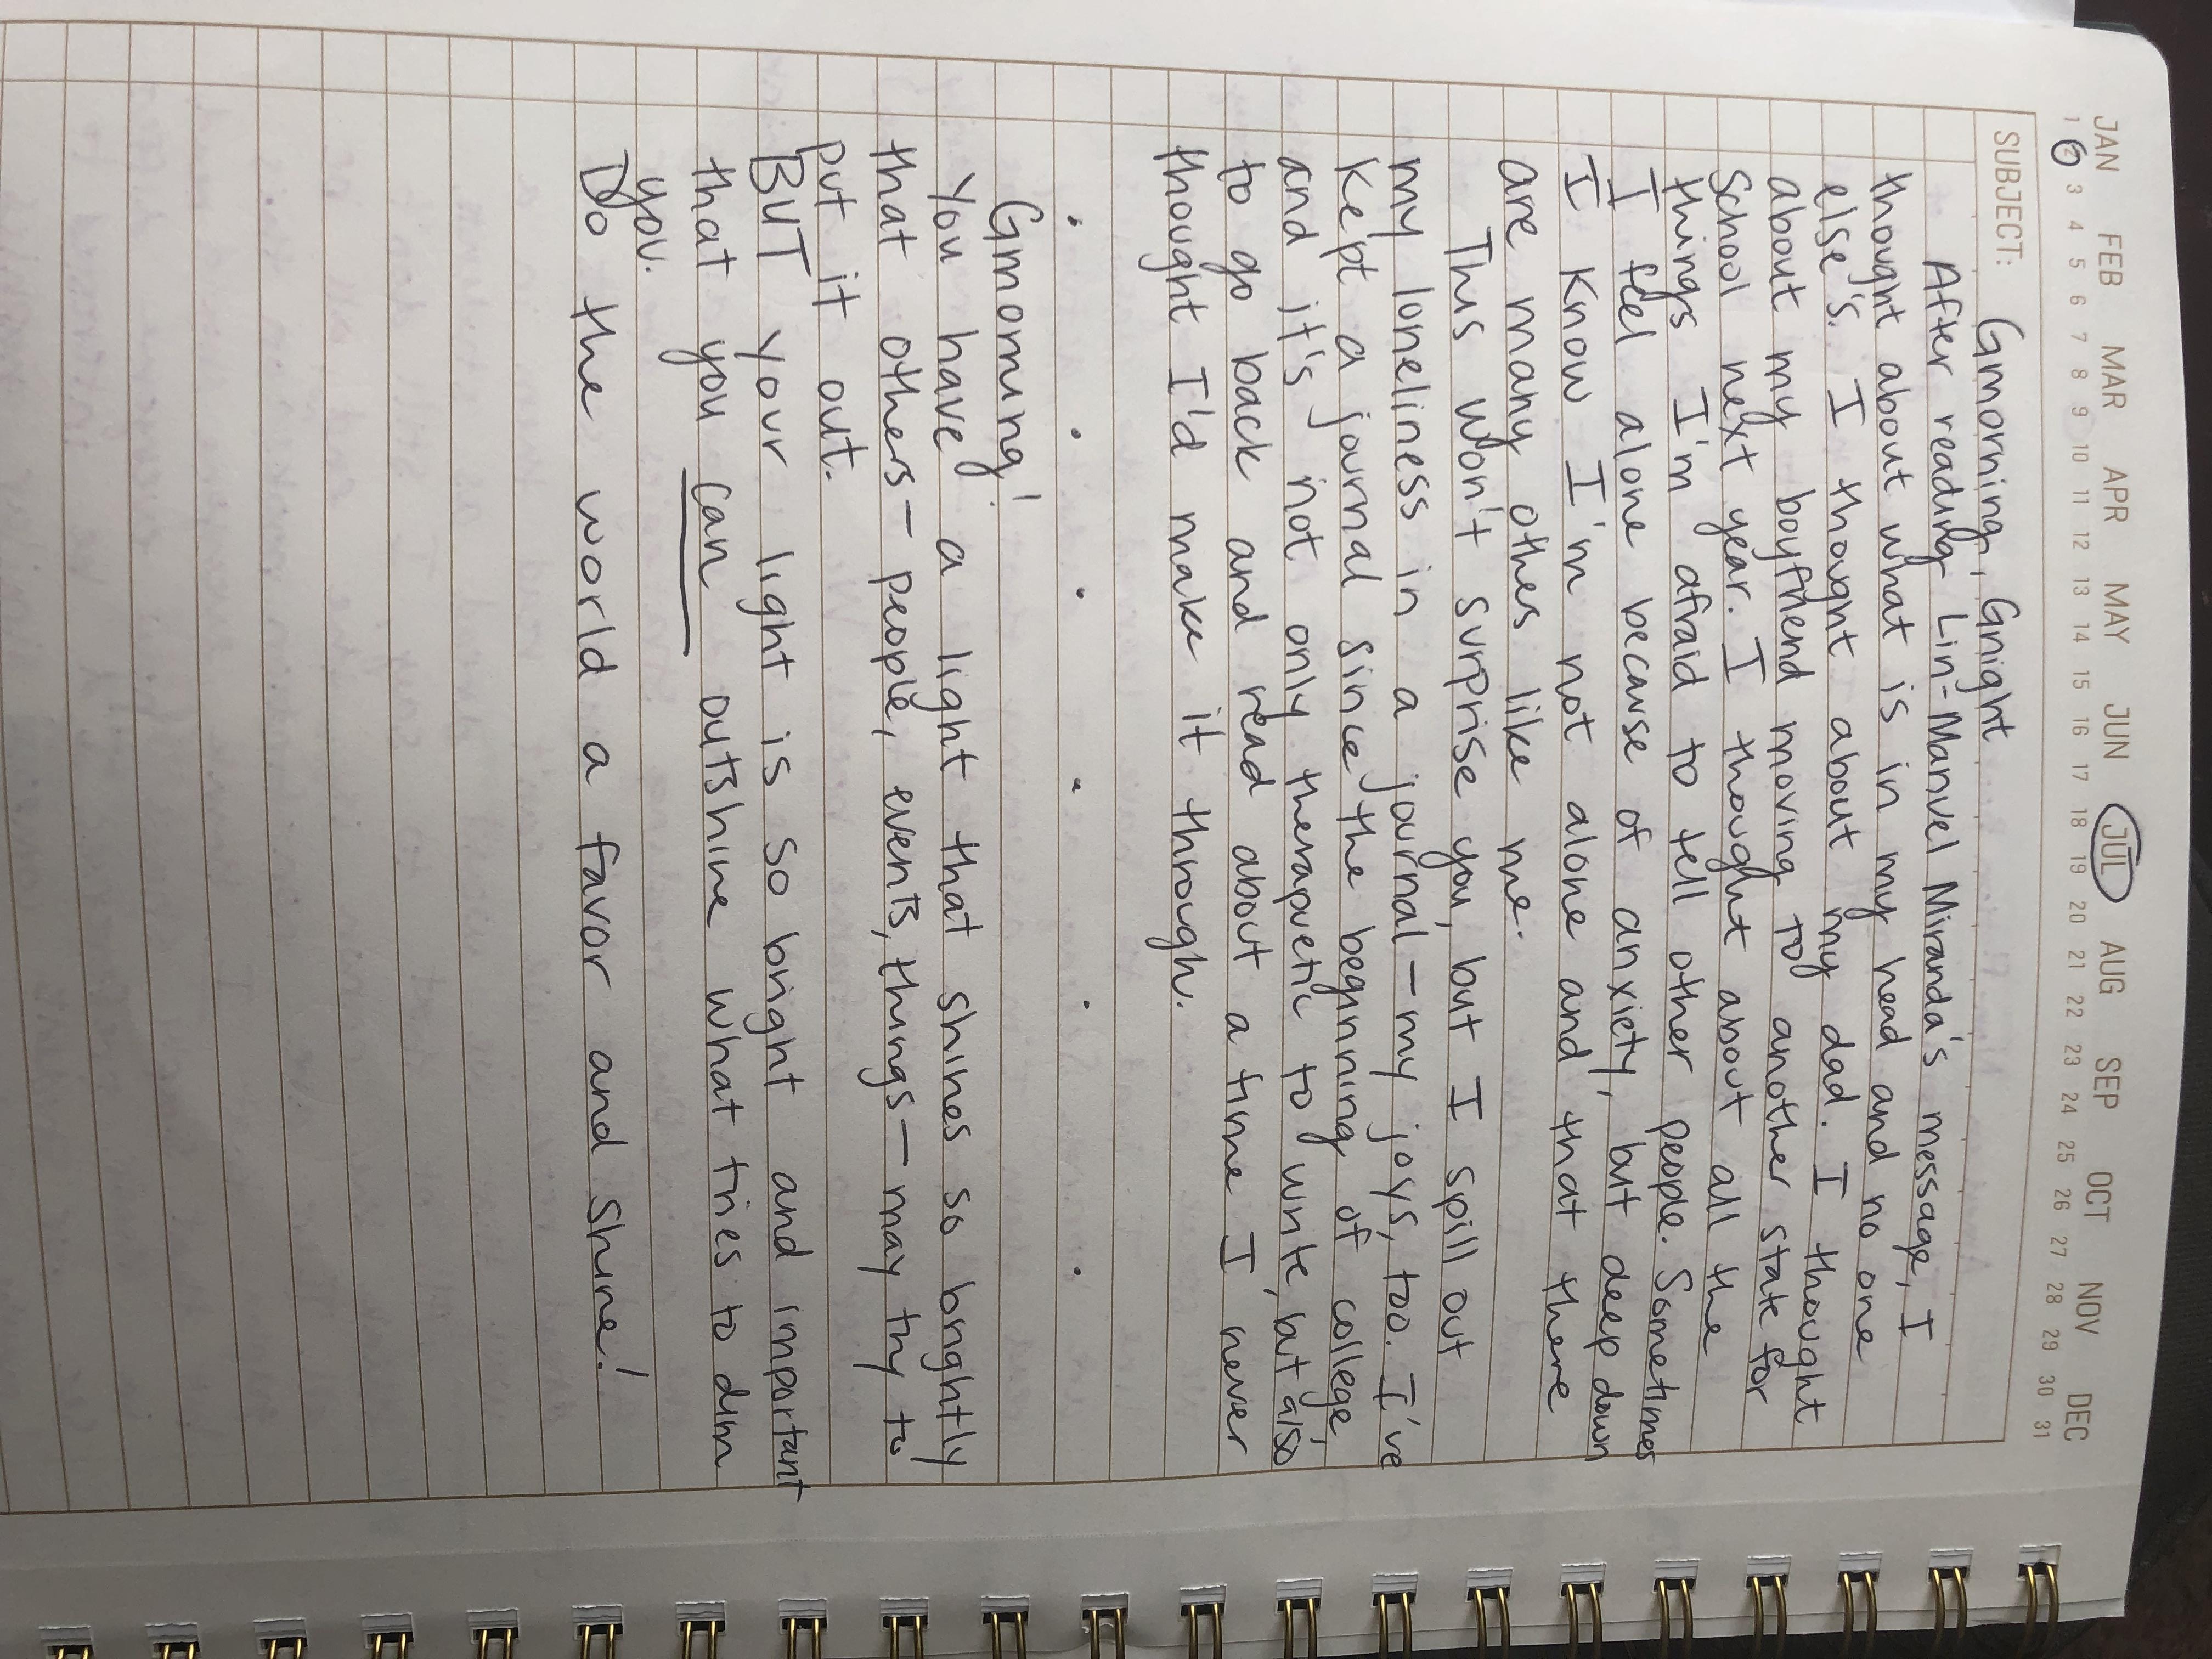 JAN FEB MAR APR MAY JUN JUL AUG SEP OCT NOV DEC
1 2 3 4 5 6 7 8 9 10 11 12 13 14 15 16 17 18 19 20 21 22 23 24 25 26 27 28 29 30 31
SUBJECT: Gmorning, Gnight
After reading Lin-Manuel Miranda's message, I
thought about what is in my head and no one
else's. I thought about my dad. I thought
about my boyfriend moving to another state for
school next year. I thought about all the
things I'm afraid to tell other people. Sometimes
I feel alone because of anxiety, but deep down
I know I'm not alone and that there
are many others like me.
This won't surprise you, but I spill out
my loneliness in a journal - my joys, too. I've
kept a journal since the beginning of college,
and it's not only therapuetic to write, but also
to go back and read about a time I never
thought I'd make it through.
. . . . . .
Gmorning!
You have a light that shines so brightly
that others - people, events, things - may try to
put it out.
BUT your light is so bright and important
that you can outshine what tries to dim
you.
Do the world a favor and shine!